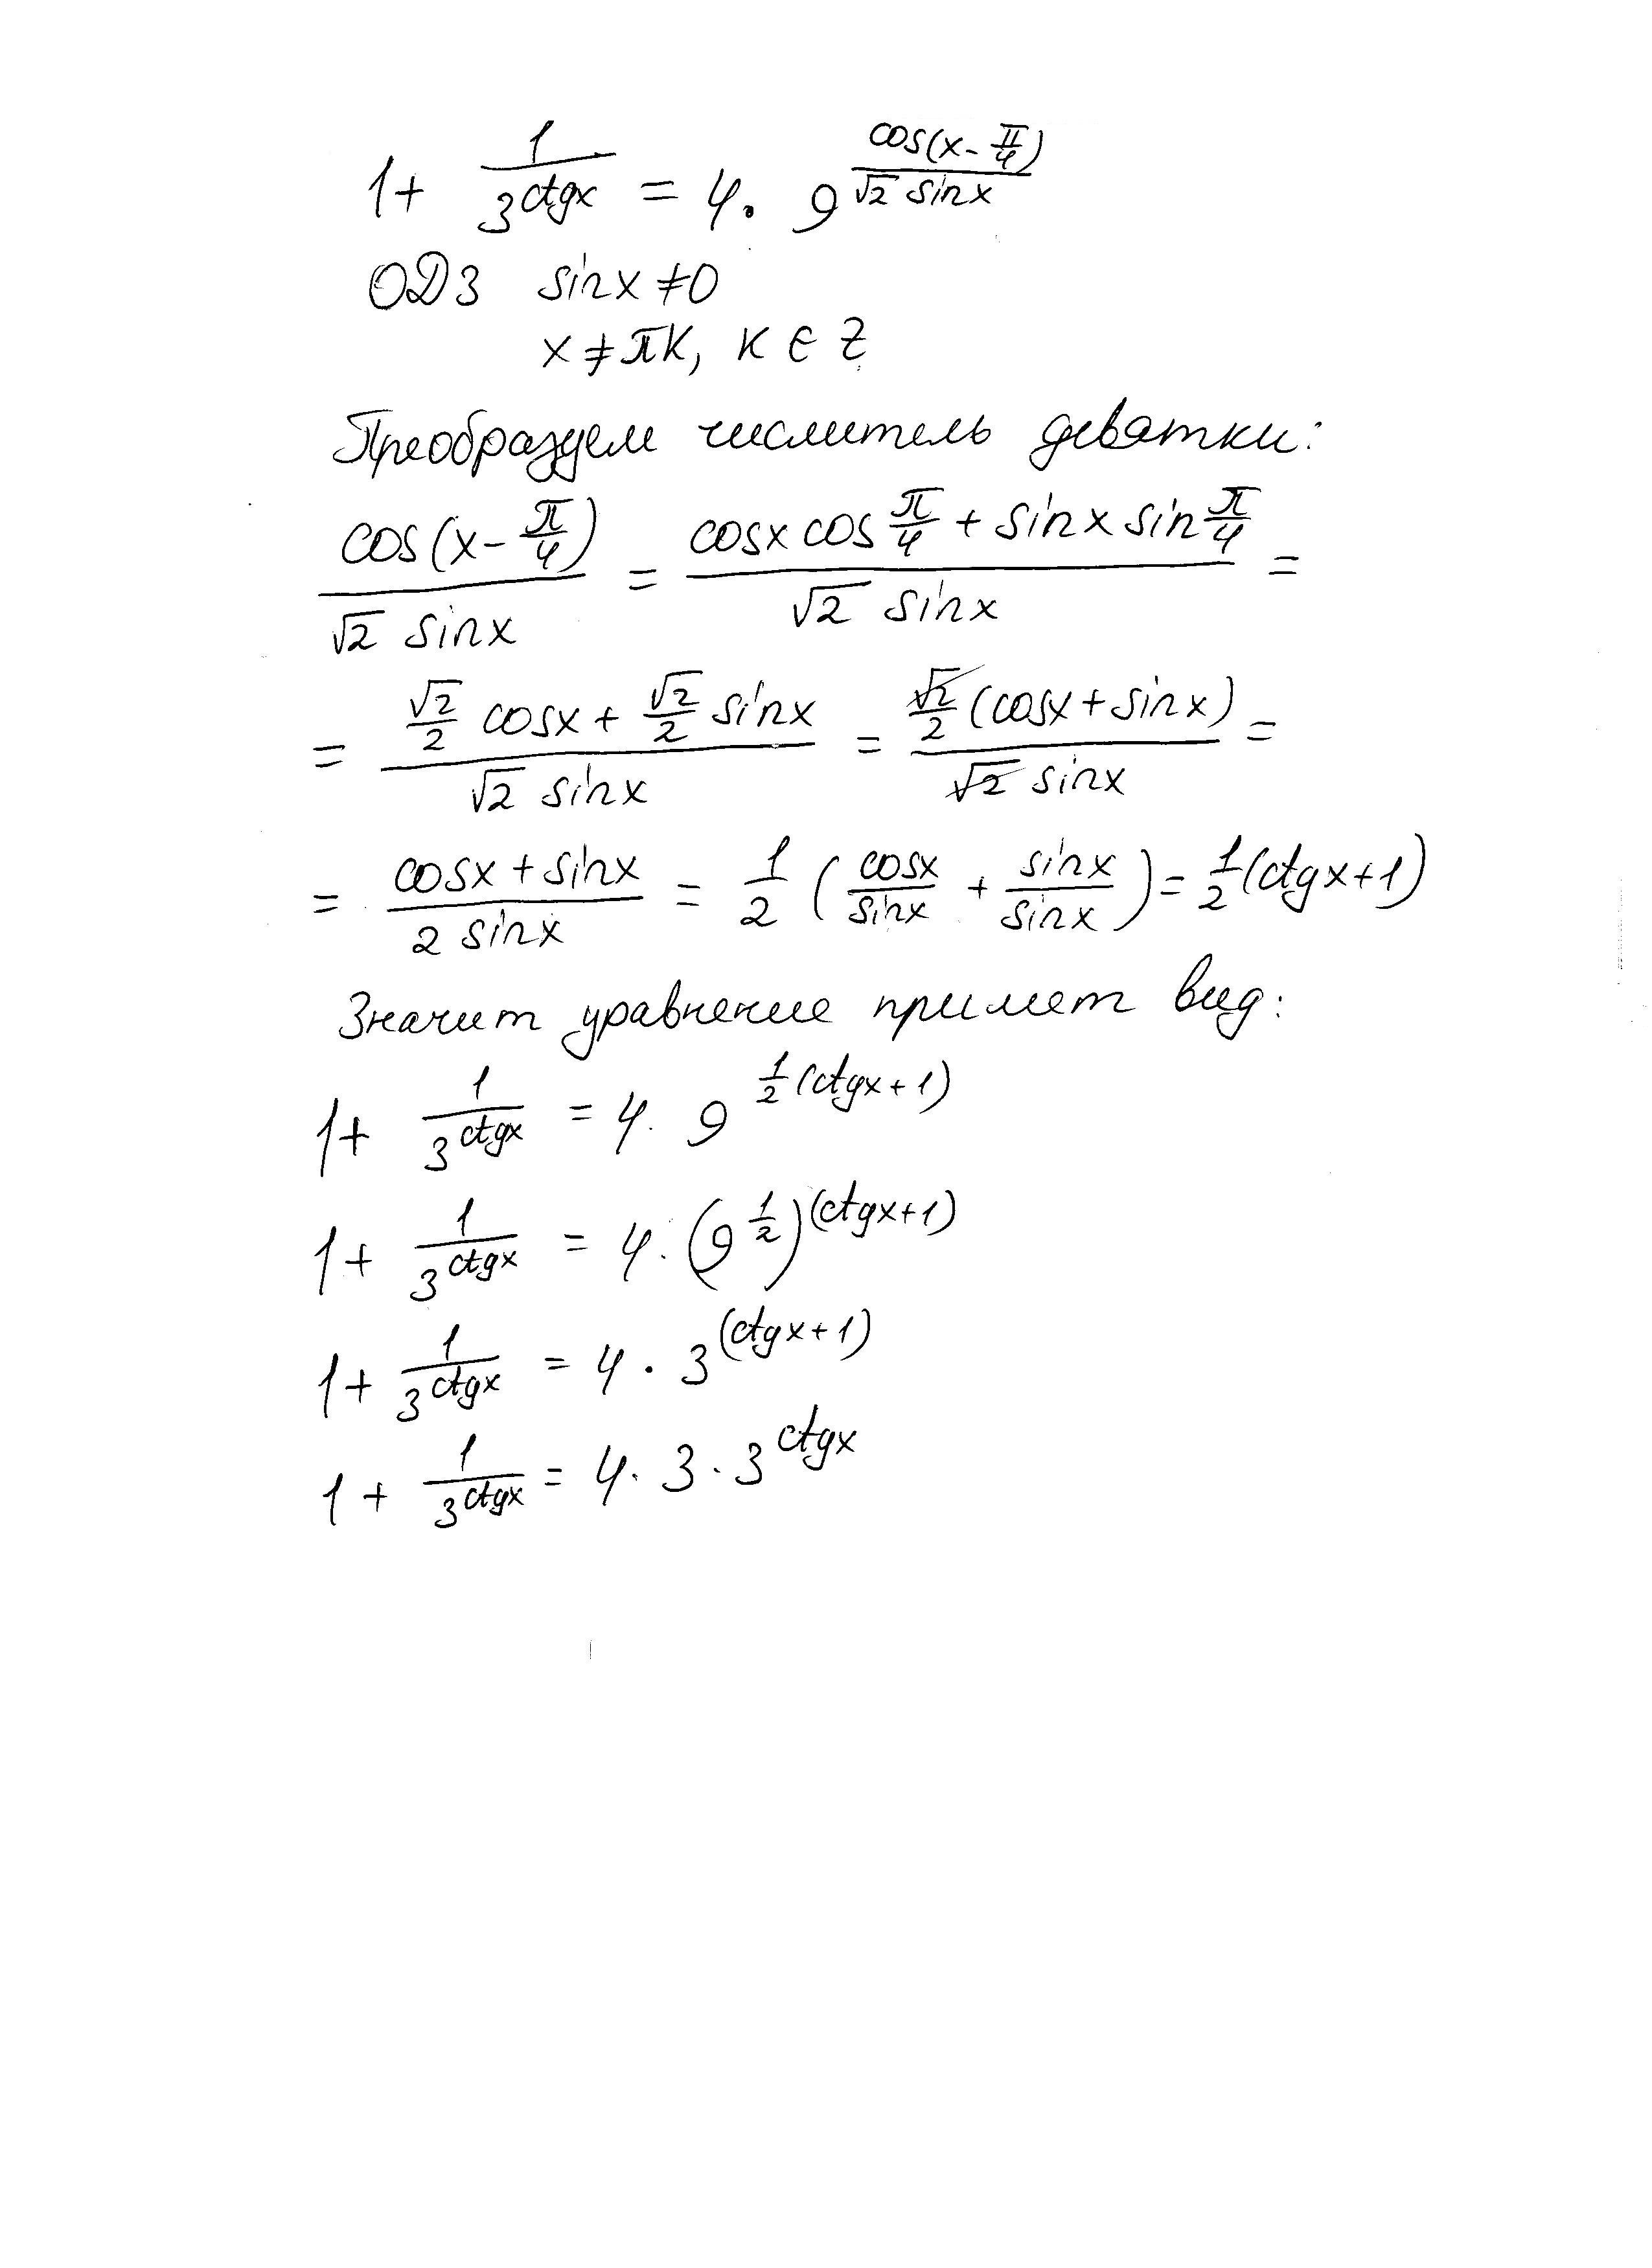 1 + 1/3^ctgx = 4 · 9^(cos(x - π/4)/(√2 sinx))
ОДЗ sinx ≠ 0
x ≠ πk, k ∈ Z
Преобразуем числитель девятки:
cos(x - π/4)/(√2 sinx) = (cosx cos π/4 + sinx sin π/4)/(√2 sinx) =
= (√2/2 cosx + √2/2 sinx)/(√2 sinx) = (√2/2 (cosx + sinx))/(√2 sinx) =
= (cosx + sinx)/(2 sinx) = 1/2 (cosx/sinx + sinx/sinx) = 1/2 (ctgx + 1)
Значит уравнение примет вид:
1 + 1/3^ctgx = 4 · 9^(1/2 (ctgx + 1))
1 + 1/3^ctgx = 4 · (9^(1/2))^(ctgx + 1)
1 + 1/3^ctgx = 4 · 3^(ctgx + 1)
1 + 1/3^ctgx = 4 · 3 · 3^ctgx